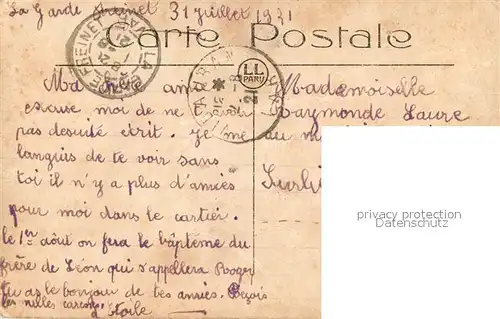 La Garde Freinet 31 juillet 1921
Carte Postale
LL
PARIS
LA GARDE FREINET
VAR
Ma amie
excuse moi de ne t'avoir
pas desuite écrit. Je me
languis de te voir sans
toi il n'y a plus d'amies
pour moi dans le cartier.
le 1er août on fera le baptême du
frère de Léon qui s'appellera Roger
tu as le bonjour de tes amies. Reçois
les milles caresses
d'étoile
Mademoiselle
Raymonde Laure
au
privacy protection
Datenschutz